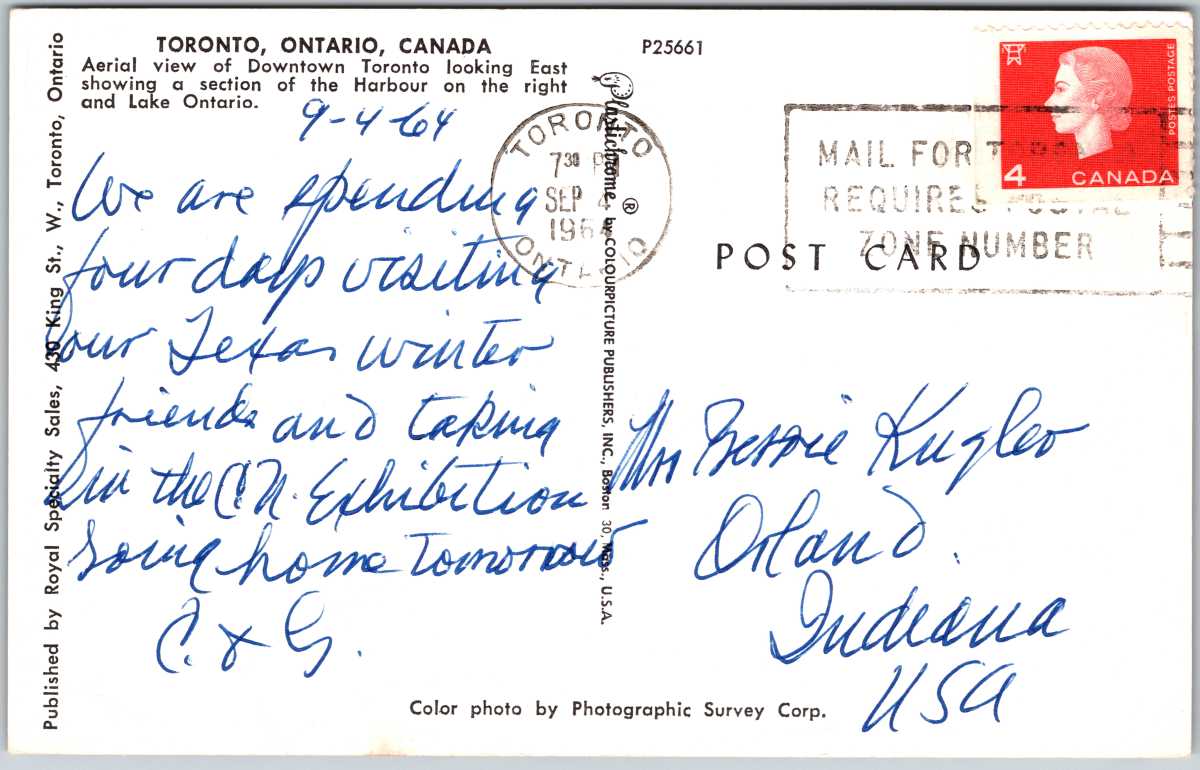 TORONTO, ONTARIO, CANADA
Aerial view of Downtown Toronto looking East
showing a section of the Harbour on the right
and Lake Ontario.
P25661
9-4-64
We are spending
four days visiting
our Texas winter
friends and taking
in the C.N. Exhibition
Going home tomorrow
C. & G.
Published by Royal Specialty Sales, 430 King St., W., Toronto, Ontario
Plastichrome ® by COLOURPICTURE PUBLISHERS, INC., Boston 30, Mass., U.S.A.
TORONTO
7 30 PM
SEP 4
1964
ONTARIO
MAIL FOR TORONTO
REQUIRES POSTAL
ZONE NUMBER
POSTES POSTAGE
4 CANADA
POST CARD
Mrs Bessie Kugler
Orland.
Indiana
USA
Color photo by Photographic Survey Corp.